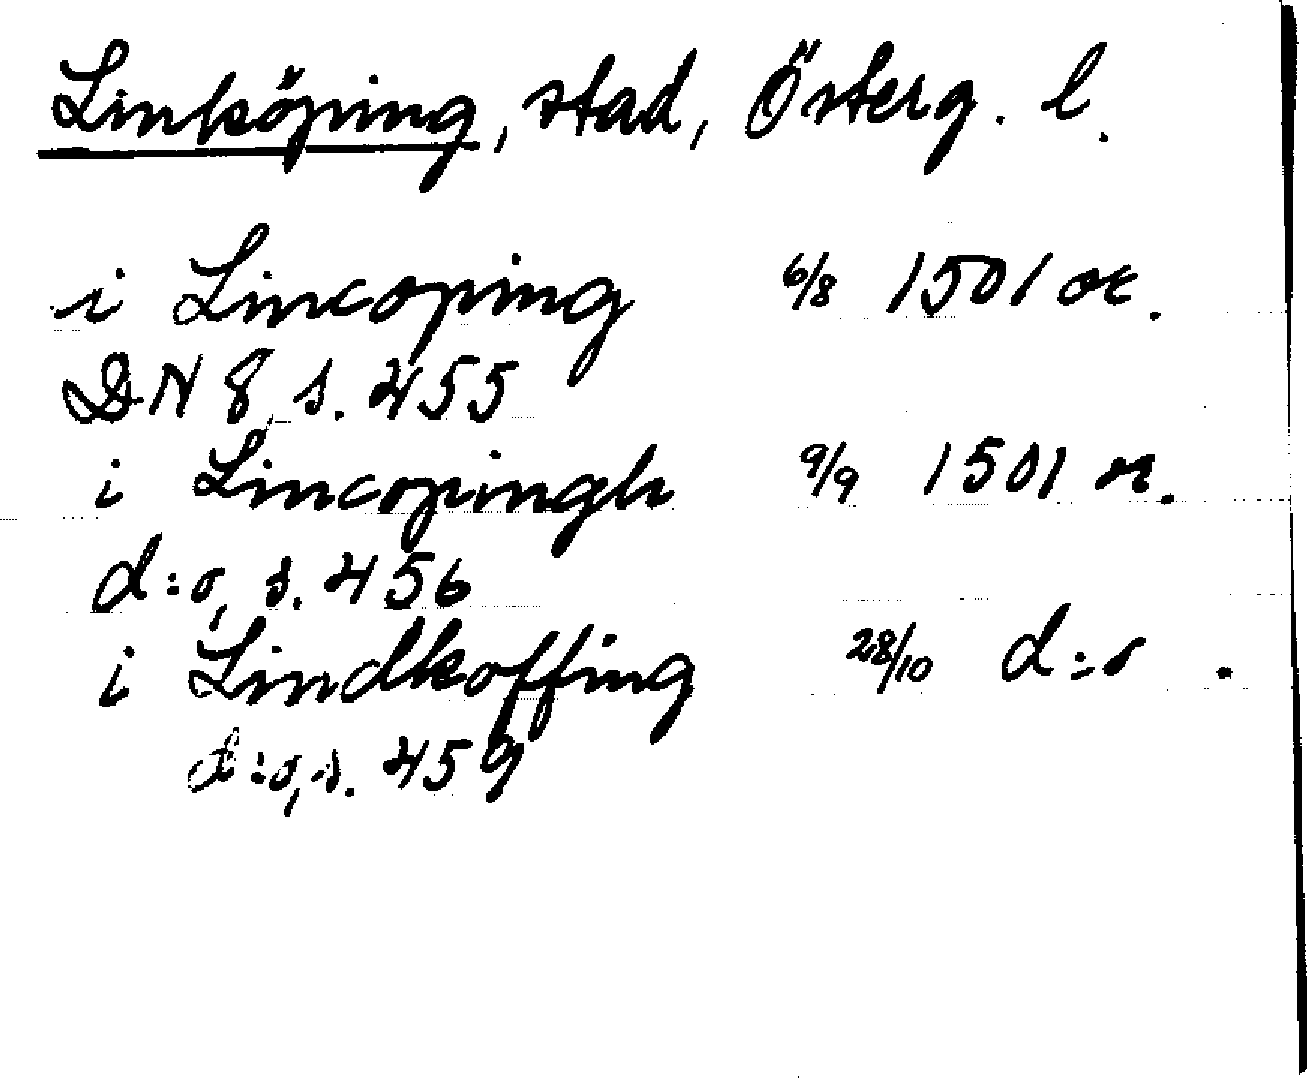 Linköping, stad, Österg. l.
i Lincoping 6/8 1501 or.
DN 8 s. 455
i Lincopingh 9/9 1501 or.
d:o, s. 456
i Lindkoffing 28/10 d:o .
d:o, s. 459